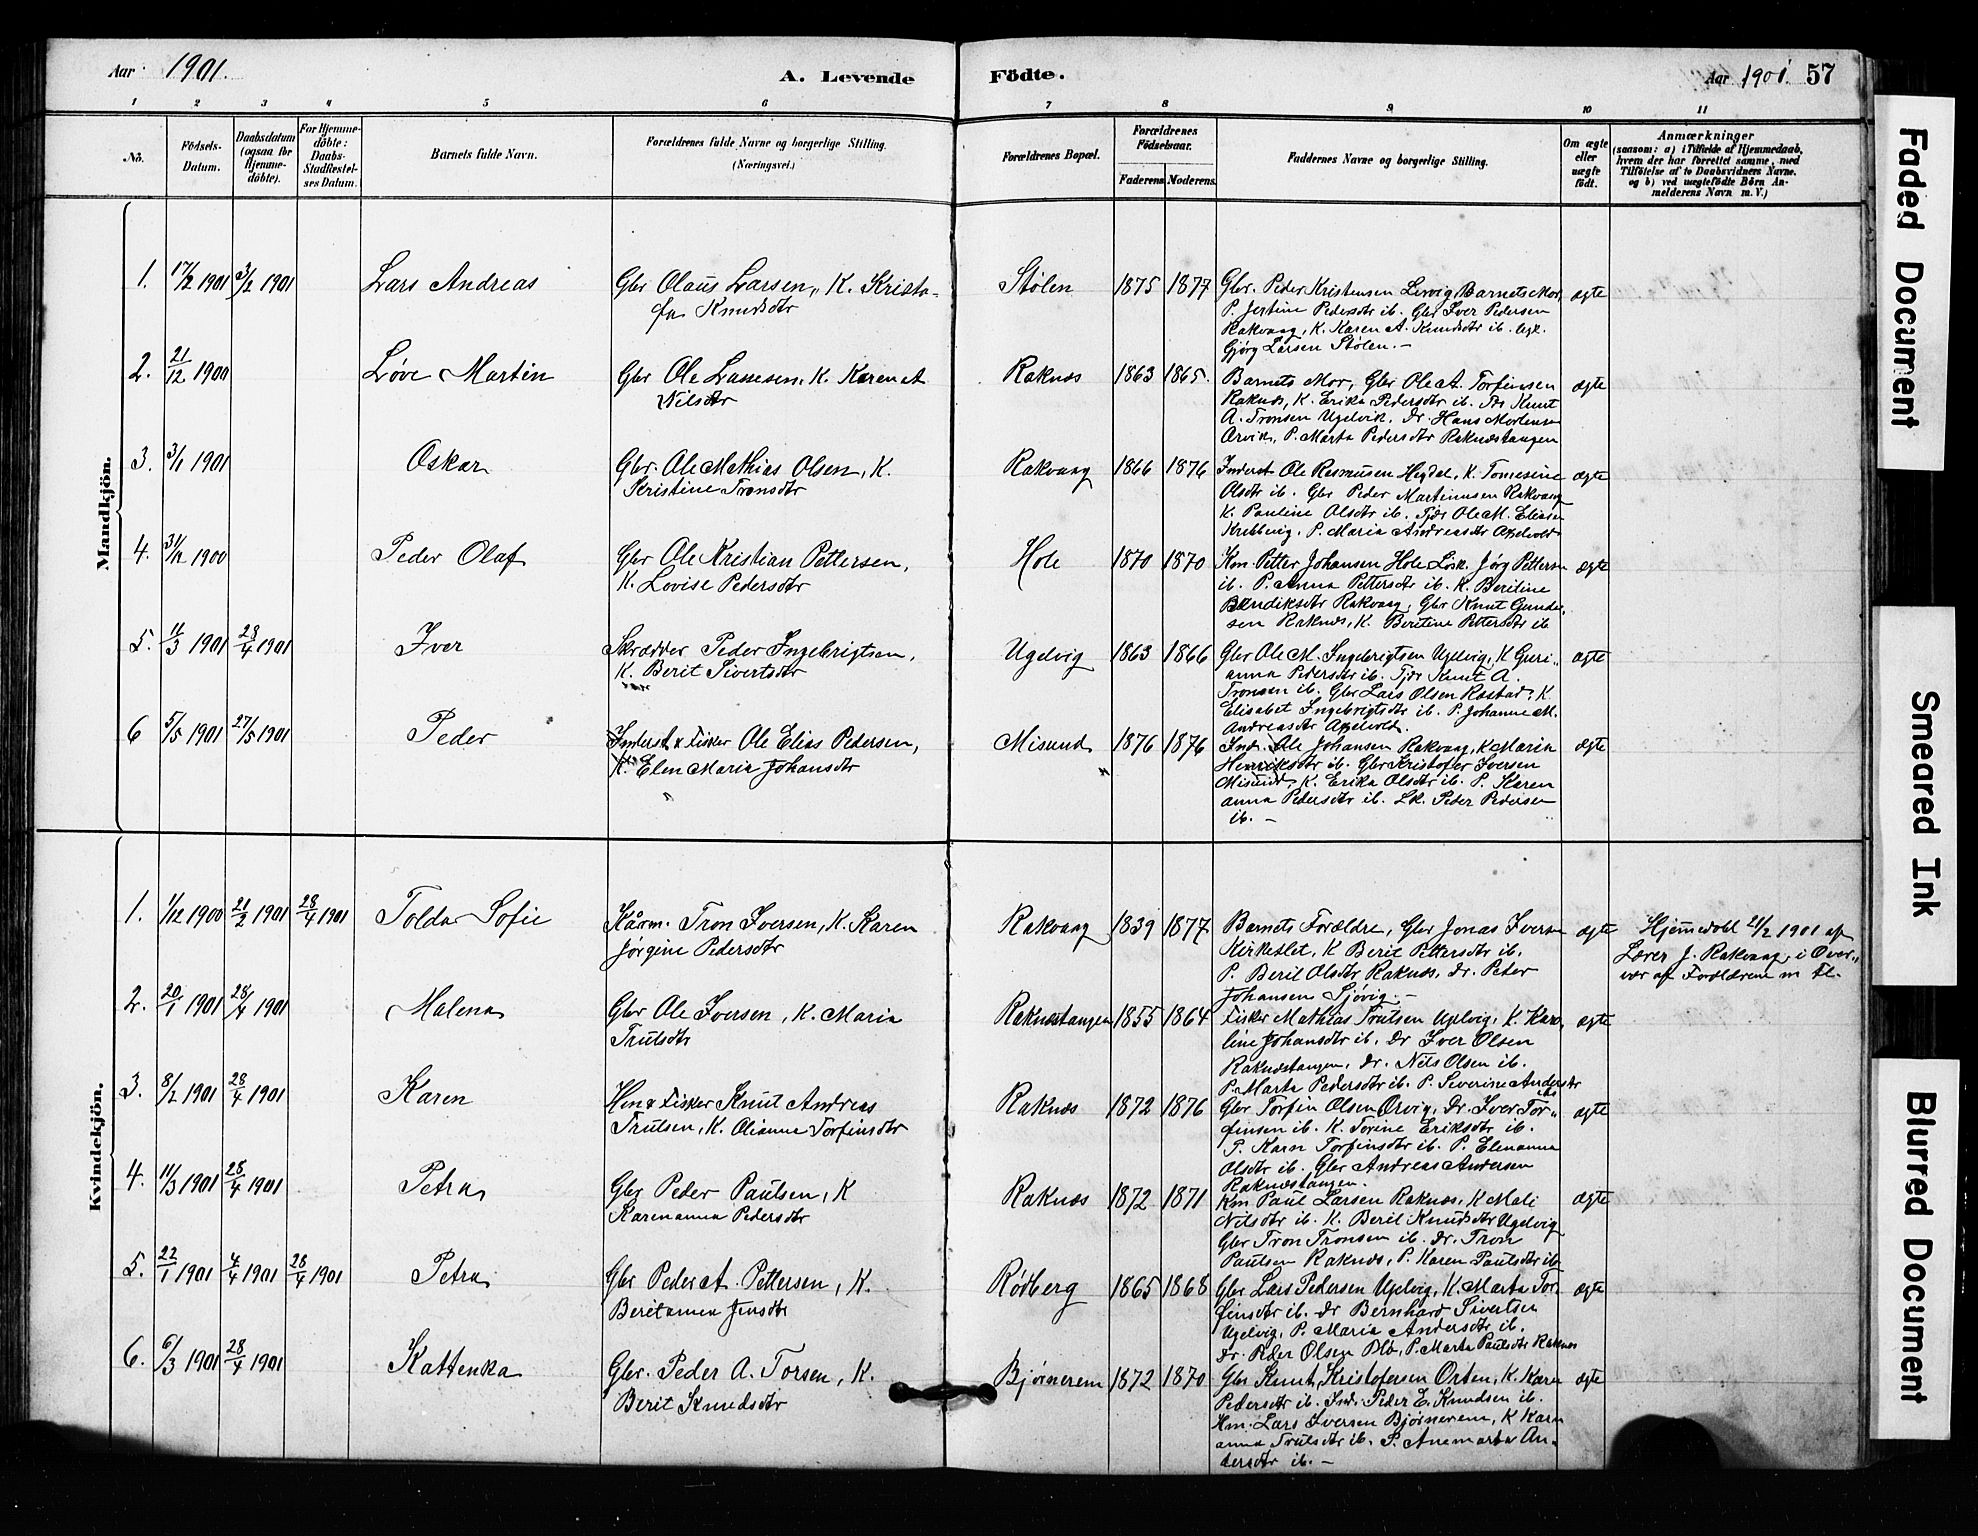 Aar 1901.
A. Levende
Födte.
Aar 1901. 57
1 2 3 4 5 6 7 8 9 10 11
No.
Födsels-Datum.
Daabsdatum (ogsaa for Hjemme-döbte).
For Hjemme-döbte: Daabs-Stadfæstel-ses Datum.
Barnets fulde Navn.
Forældrenes fulde Navne og borgerlige Stilling.
(Næringsvei.)
Forældrenes Bopæl.
Forældrenes Födselsaar.
Faderens. Moderens.
Faddernes Navne og borgerlige Stilling.
Om ægte eller uægte født.
Anmærkninger
(saasom: a) i Tilfælde af Hjemmedaab,
hvem der har forrettet samme, med
Tilföielse af to Daabsvidners Navne.
og b) ved uægtefödte Börn An-
melderens Navn m. V.)
Mandkjön.
1. 17/2 1901 3/2 1901 Lars Andreas
Gbr Olaus Larsen, K. Kristo-
fa Knudsdtr
Stølen 1875 1877
Gbr. Peder Kristensen Lervig, Barnets Mor,
P. Jertine Pedersdtr ib. Gbr Iver Pedersen
Rakvaag, K. Karen A. Knudsdtr ib.
Gjørg Larsen Stølen. –
ægte
2. 21/12 1900 Løve Martin
Gbr Ole Lassesen, K. Karen A
Nilsdtr
Raknæs 1863 1865.
Barnets Mor, Gbr Ole A. Torfinsen
Raknæs, K. Erika Pedersdtr ib. Tjdr Knut
A. Tronsen Ugelvik, Dr. Hans Mortensen
Orvik, P. Marta Pedersdtr Raknæstangen
ægte
3. 3/1 1901 Oskar
Gbr. Ole Mathias Olsen, K.
Kristine Tronsdtr
Rakvaag 1866 1876
Inderst Ole Rasmusen Hegdal, K. Tomesine
Olsdtr ib. Gbr Peder Martinusen Rakvaag
K. Pauline Olsdtr ib. Tjdr Ole M. Eliasen
Krebbevig, P. Maria Andreasdtr Opelvold
ægte
4. 31/12 1900 Peder Olaf
Gbr Ole Kristian Pettersen,
K. Lovise Pedersdtr
Hole 1870 1870
Km Petter Johansen Hole, Løsk. Jørg Pettersen
ib. P. Anna Pettersdtr ib. K. Beritine
Bendiksdtr Rakvaag, Gbr Knut Gunder-
sen Raknæs, K. Beritine Pettersdtr ib
ægte
5. 11/3 1901 28/4 1901 Iver
Skrædder Peder Ingebrigtsen,
K. Berit Sivertsdtr
Ugelvig 1863 1866
Gbr Ole M. Ingebrigtsen Ugelvig, K Guri-
anna Pedersdtr ib. Tjdr Knut A.
Tronsen ib. Gbr Lars Olsen Rastad, K.
Elisabet Ingebrigtsdtr ib. P. Johanne M.
Andreasdtr Opelvold.
ægte
6 5/5 1901 27/5 1901 Peder
Inderst & Fisker Ole Elias Pedersen,
K. Elen Maria Johansdtr
Misund 1876 1876
Ind. Ole Johansen Rakvaag, K Maria
Henriksdtr ib. Gbr Kristofer Iversen
Misund, K. Erika Olsdtr ib. P. Karen
anna Pedersdtr ib. Lk. Peder Pedersen
ib. –
ægte
Kvindekjön.
1. 1/12 1900 21/2 1901 28/4 1901 Tolda Sofie
Kårm. Tron Iversen, K. Karen
Jørgine Pedersdtr
Rakvaag 1839 1877
Barnets Forældre, Gbr Jonas Iversen
Kirkeslet, K Berit Pettersdtr ib.
P. Beril Olsdtr Raknæs, Dr. Peder
Johansen Sjøvig. –
ægte
Hjemmedøbt 21/2 1901 af
Lærer J. Rakvaag, i Over-
vær af Forældrene m Fl.
2. 20/1 1901 28/4 1901 Malena
Gbr Ole Iversen, K. Maria
Trulsdtr
Raknæstangen 1855 1864
Fisker Mathias Trulsen Ugelvig, K. Karo-
line Johansdtr ib, Dr Iver Olsen
Raknæstangen, Dr. Nils Olsen ib.
P. Marta Pedersdtr ib. P. Severine Andersdtr
ib
ægte
3. 8/2 1901 28/4 1901 Karen
Hm & Fisker Knut Andreas
Trulsen, K. Olianna Torfinsdtr
Raknæs 1872 1876
Gbr Torfin Olsen Orvig, Dr. Iver Tor-
finsen ib. K. Torine Eriksdtr ib.
P. Karn Torfinsdtr ib. P. Elenanna
Olsdtr ib. Gbr Andreas Andersen
Raknæstangen.
ægte
4. 11/3 1901 28/4 1901 Petra
Gbr Peder Paulsen, K
Karenanna Pedersdtr
Raknæs 1872 1871
Km Paul Larsen Raknæs, K Mali
Nilsdtr ib. K. Beril Knudsdtr Ugelvig
Gbr Tron Tronsen ib. Dr. Tron
Paulsen Raknæs, P. Karen Paulsdtr ib
ægte
5. 22/1 1901 4/4 1901 28/4 1901 Petra
Gbr Peder A. Pettersen, K.
Beritanna Jensdtr
Rødberg 1865 1868
Gbr Lars Pedersen Ugelvig, K. Marta Tor-
finsdtr ib. Dr Bernhard Sivertsen
Ugelvig, P. Maria Andersdtr ib.
Dr. Peder Olsen Rdb, P. Marta Paulsdtr Raknæs
ægte
6. 6/3 1901 28/4 1901 Kattenka
Gbr. Peder A. Torsen, K.
Berit Knudsdtr
Bjørnerem 1872 1870
Gbr Knut Kristofersen Orten, K. Karen
Pedersdtr ib. Ind. Peder E. Knudsen ib.
Hm. Lars Iversen Bjørnerem, K Karn
anna Trulsdtr ib. P. Anemarta An-
dersdtr ib. –
ægte
Faded Document
Smeared Ink
Blurred Document